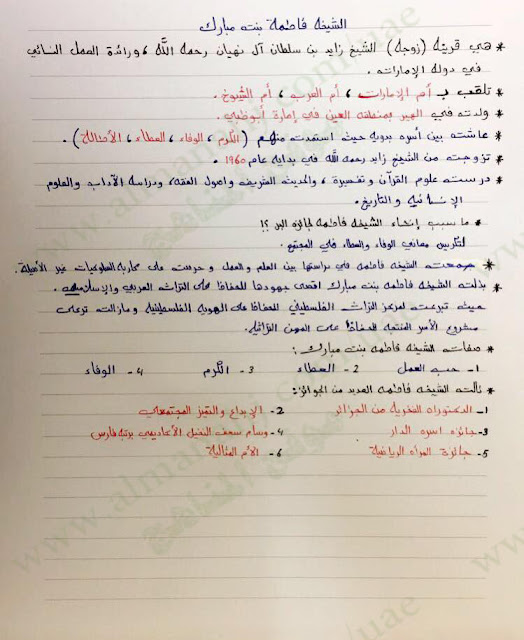 الشيخة فاطمة بنت مبارك
* هي قرينة (زوجة) الشيخ زايد بن سلطان آل نهيان رحمه الله ، ورائدة العمل النسائي
في دولة الإمارات .
* تلقب بـ أم الإمارات ، أم العرب ، أم الشيوخ .
* ولدت في الهير بمنطقة العين في إمارة أبوظبي .
* عاشت بين أسرة بدوية حيث استمدت منهم (الكرم ، الوفاء ، العطاء ، الأصالة) .
* تزوجت من الشيخ زايد رحمه الله في بداية عام 1960 .
* درست علوم القرآن وتفسيره ، والحديث الشريف وأصول الفقه، ودراسة الآداب والعلوم
الإنسانية والتاريخ .
* ما سبب إنشاء الشيخة فاطمة لجائزة البر ؟!
لتكريس معاني الوفاء والعطاء في المجتمع .
* جمعت الشيخة فاطمة في دراستها بين العلم والعمل و حرصت على محاربة السلوكيات غير الأصيلة .
* بذلت الشيخة فاطمة بنت مبارك أقصى جهودها للحفاظ على التراث العربي والإسلامي
حيث تبرعت لمركز التراث الفلسطيني للحفاظ على الهوية الفلسطينية ومازالت ترعى
مشروع الأسر المنتجة للحفاظ على المهن التراثية .
* صفات الشيخة فاطمة بنت مبارك :
1- حب العمل 2- العطاء 3- الكرم 4- الوفاء
* نالت الشيخة فاطمة العديد من الجوائز :
1- الدكتوراه الفخرية من الجزائر 2- الإبداع والتميز المجتمعي
3- جائزة أسرة الدار 4- وسام سعف النخيل الأكاديمي برتبة فارس
5- جائزة المرأة الرياضية 6- الأم المثالية